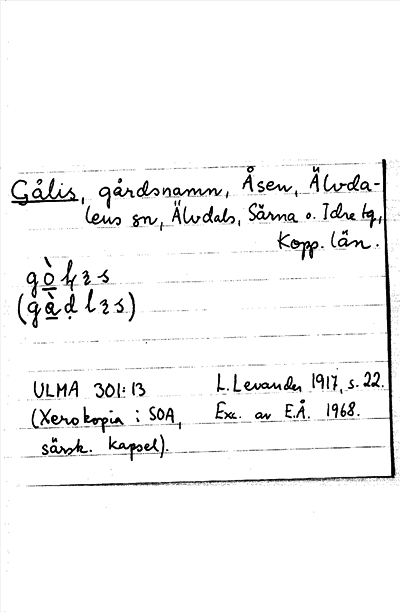 Gålis, gårdsnamn, Åsen, Älvda-
lens sn, Älvdals, Särna o. Idre tg,
Kopp. län.
ULMA 301:13 L. Levander 1917, s. 22.
(Xerokopia i SOA, Exc. av E.Å. 1968.
särsk. kapsel).